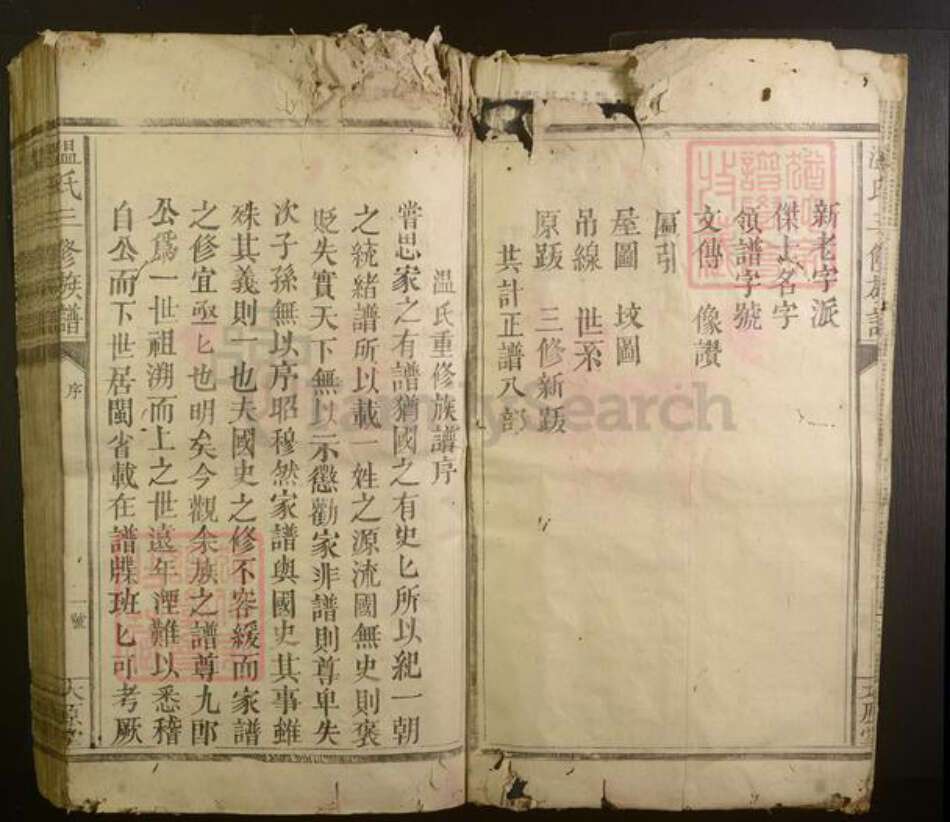 新老字派
傑士名字
領譜字號
文傳 像讚
匾引
屋圖 坟圖
吊線 世系
原跋 三修新跋
共計正譜八部
温氏重修族譜序
嘗思家之有譜猶國之有史匕所以紀一朝
之統緒譜所以載一姓之源流國無史則褒
貶失實天下無以示懲勸家非譜則尊卑失
次子孫無以序昭穆然家譜與國史其事雖
殊其義則一也夫國史之修不容緩而家譜
之修宜亟匕也明矣今觀余族之譜尊九郎
公爲一世祖溯而上之世遠年湮難以悉稽
自公而下世居閩省載在譜牒班匕可考厥
温氏三修族譜
序
一號
太原堂
FamilySearch